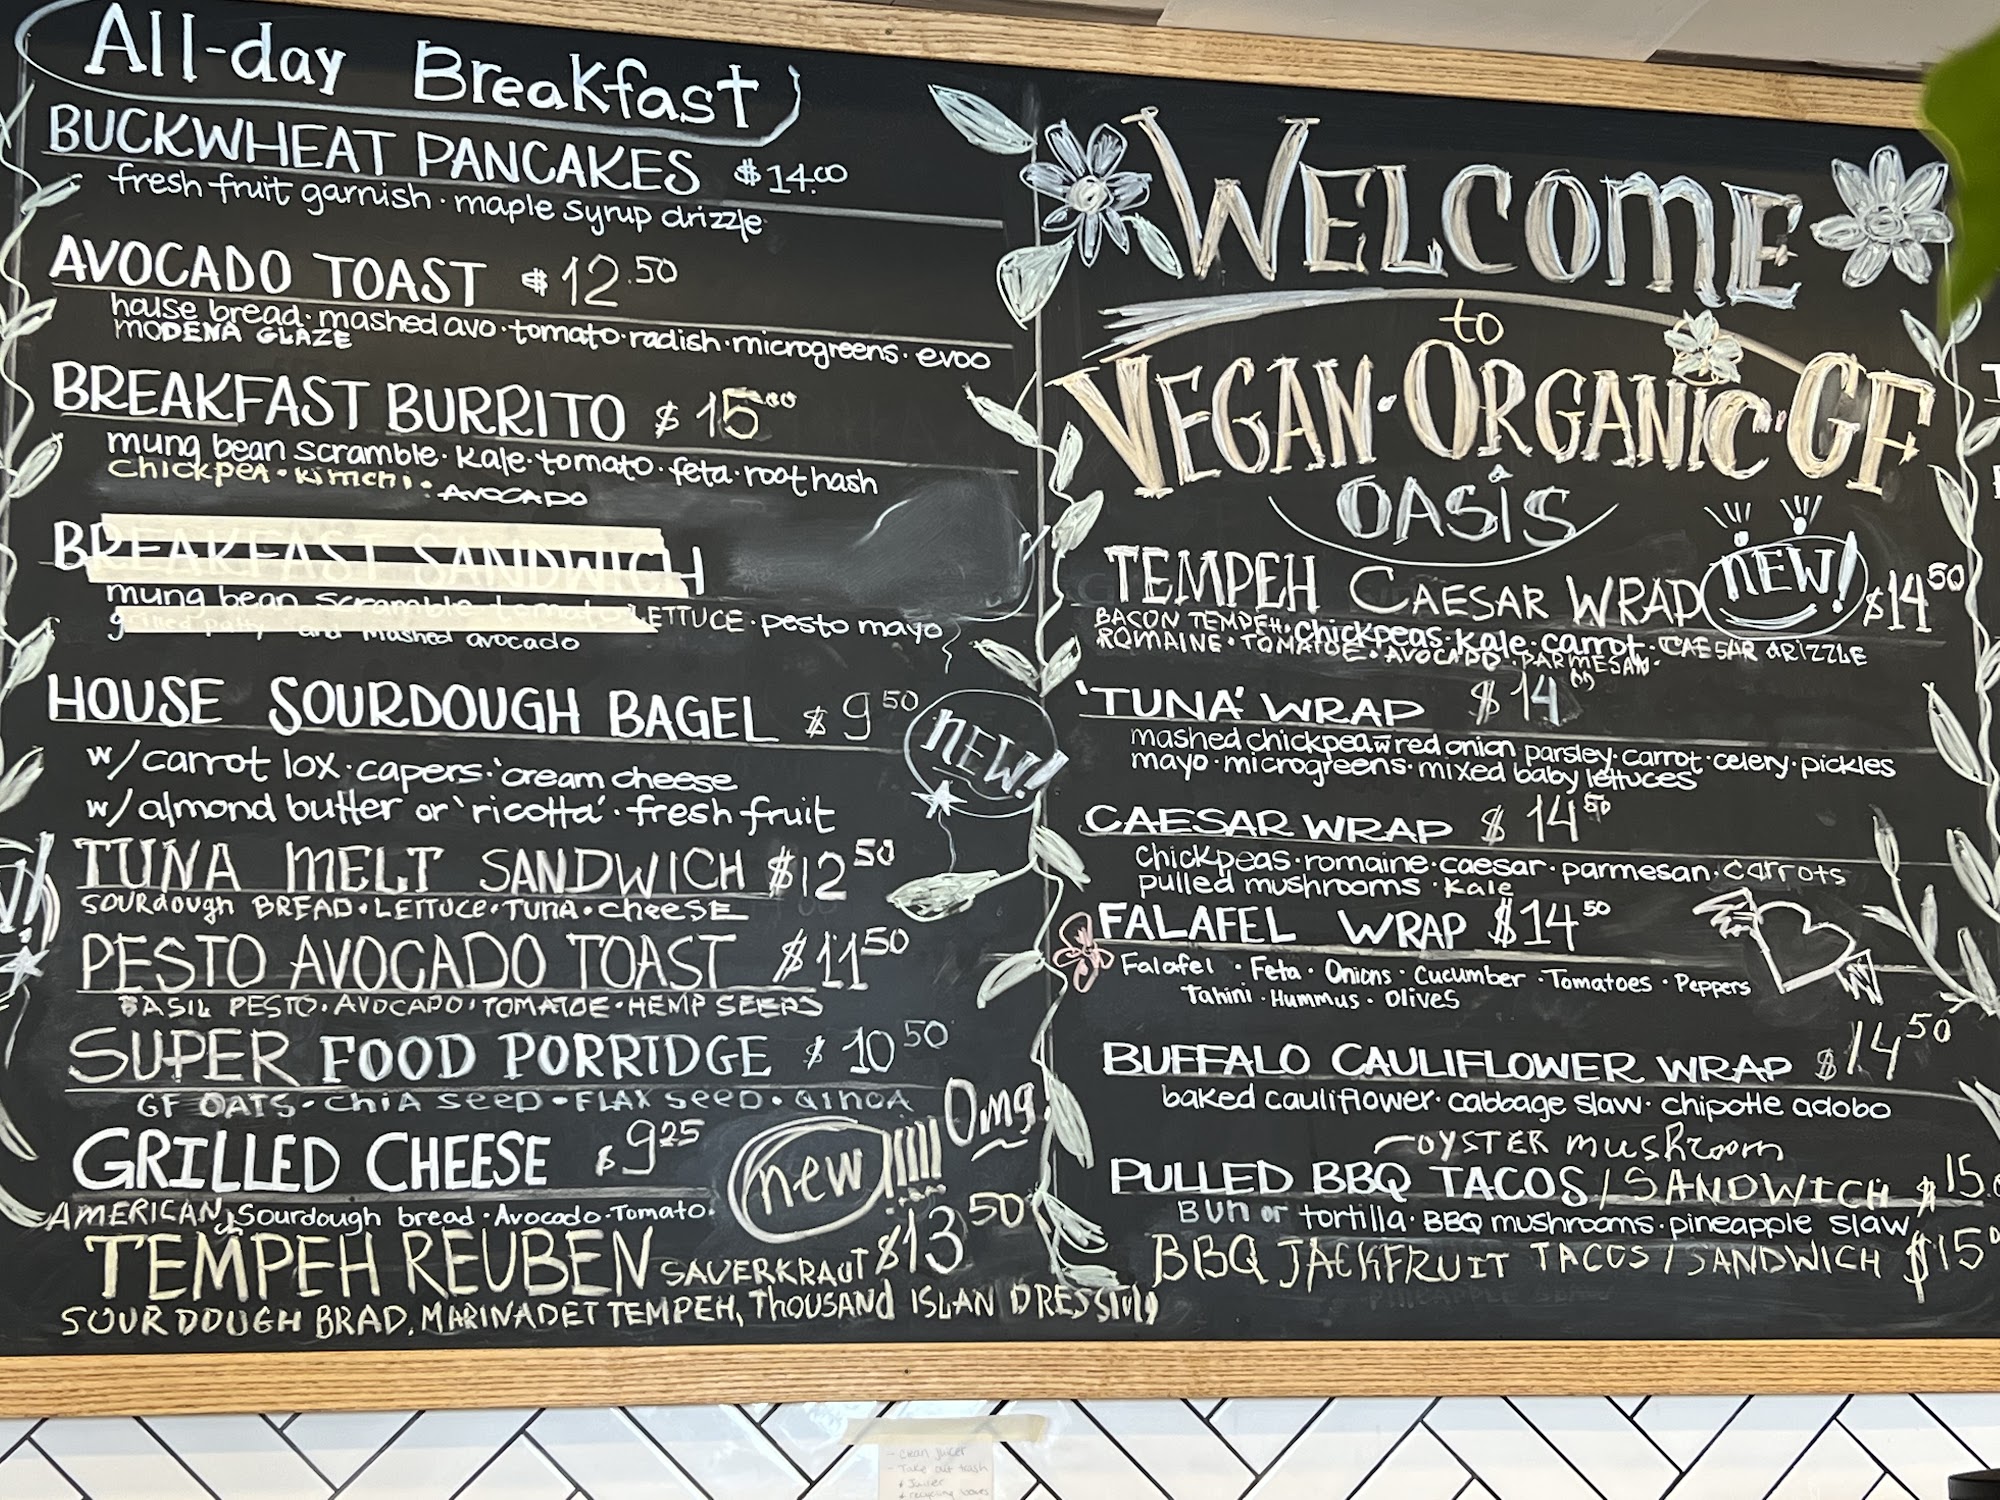 All-day Breakfast
BUCKWHEAT PANCAKES $14.00
fresh fruit garnish · maple syrup drizzle
AVOCADO TOAST $12.50
house bread · mashed avo · tomato · radish · microgreens · evoo
MODENA GLAZE
BREAKFAST BURRITO $15.00
mung bean scramble · kale · tomato · feta · root hash
chickpea · kimchi · AVOCADO
BREAKFAST SANDWICH
mung bean scramble tomato LETTUCE · pesto mayo
grilled patty and mashed avocado
HOUSE SOURDOUGH BAGEL $9.50
NEW!
w/carrot lox · capers · 'cream cheese
w/almond butter or 'ricotta' · fresh fruit
TUNA MELT SANDWICH $12.50
SOURdough BREAD · LETTUCE · TUNA · CHEESE
PESTO AVOCADO TOAST $11.50
BASIL PESTO · AVOCADO · TOMATOE · HEMP SEEDS
SUPER FOOD PORRIDGE $10.50
GF OATS · CHIA SEED · FLAX SEED · QINOA
GRILLED CHEESE $9.25
new!!!!! OMG!
AMERICAN, Sourdough bread · Avocado · Tomato ·
TEMPEH REUBEN SAVERKRAUT $13.50
SOUR DOUGH BRAD, MARINADET TEMPEH, THOUSAND ISLAN DRESSING
WELCOME
to
VEGAN · ORGANIC · GF
OASIS
TEMPEH CAESAR WRAP NEW! $14.50
BACON TEMPEH · chickpeas · kale · carrot · CAESAR DRIZZLE
ROMAINE · TOMATOE · AVOCADO · PARMESAN ·
'TUNA' WRAP $14.00
mashed chickpea w red onion parsley · carrot · celery · pickles
mayo · microgreens · mixed baby lettuces
CAESAR WRAP $14.50
chickpeas · romaine · caesar · parmesan · carrots
pulled mushrooms · kale
FALAFEL WRAP $14.50
Falafel · Feta · Onions · Cucumber · Tomatoes · Peppers
Tahini · Hummus · Olives
BUFFALO CAULIFLOWER WRAP $14.50
baked cauliflower · cabbage slaw · chipotle adobo
OYSTER mushroom
PULLED BBQ TACOS / SANDWICH $15.
BUN or tortilla · BBQ mushrooms · pineapple slaw
BBQ JACKFRUIT TACOS / SANDWICH $15
- clean juicer
- Take out trash
* Juicer
* recycling boxes